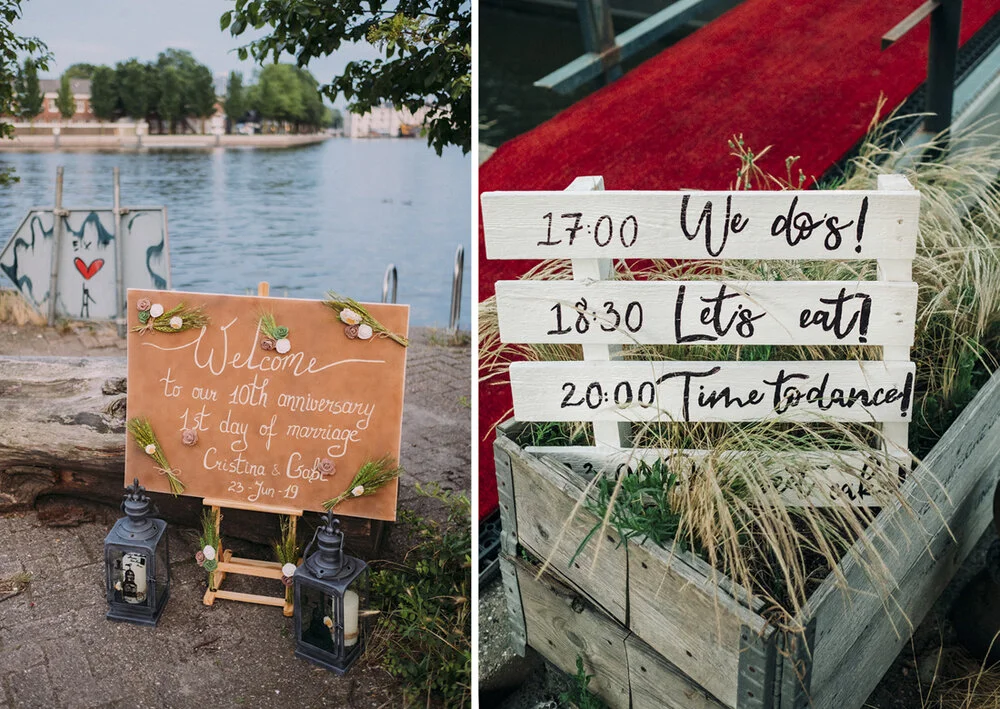 Welcome
to our 10th anniversary
1st day of marriage
Cristina & Gabi
23-Jun-19
17:00 We do's!
18:30 Let's eat!
20:00 Time to dance!